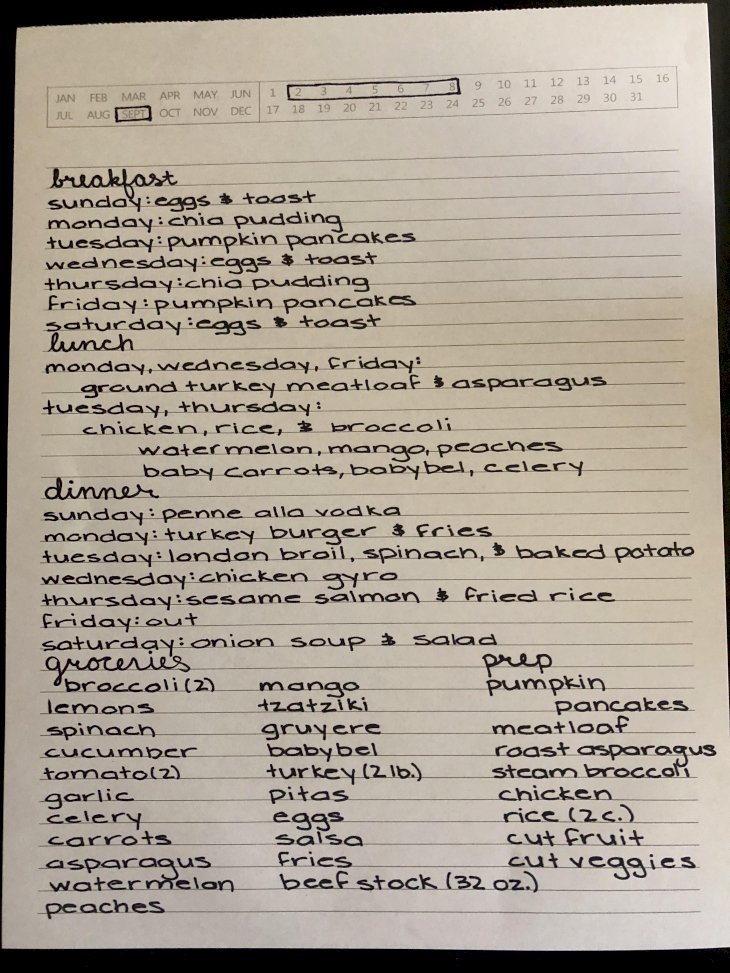 JAN FEB MAR APR MAY JUN 1 2 3 4 5 6 7 8 9 10 11 12 13 14 15 16
JUL AUG SEPT OCT NOV DEC 17 18 19 20 21 22 23 24 25 26 27 28 29 30 31
breakfast
sunday: eggs & toast
monday: chia pudding
tuesday: pumpkin pancakes
wednesday: eggs & toast
thursday: chia pudding
friday: pumpkin pancakes
saturday: eggs & toast
lunch
monday, wednesday, friday:
ground turkey meatloaf & asparagus
tuesday, thursday:
chicken, rice, & broccoli
watermelon, mango, peaches
baby carrots, babybel, celery
dinner
sunday: penne alla vodka
monday: turkey burger & fries
tuesday: london broil, spinach, & baked potato
wednesday: chicken gyro
thursday: sesame salmon & fried rice
friday: out
saturday: onion soup & salad
groceries
broccoli (2)
lemons
spinach
cucumber
tomato (2)
garlic
celery
carrots
asparagus
watermelon
peaches
mango
tzatziki
gruyere
babybel
turkey (2 lb.)
pitas
eggs
salsa
fries
beef stock (32 oz.)
prep
pumpkin
pancakes
meatloaf
roast asparagus
steam broccoli
chicken
rice (2 c.)
cut fruit
cut veggies